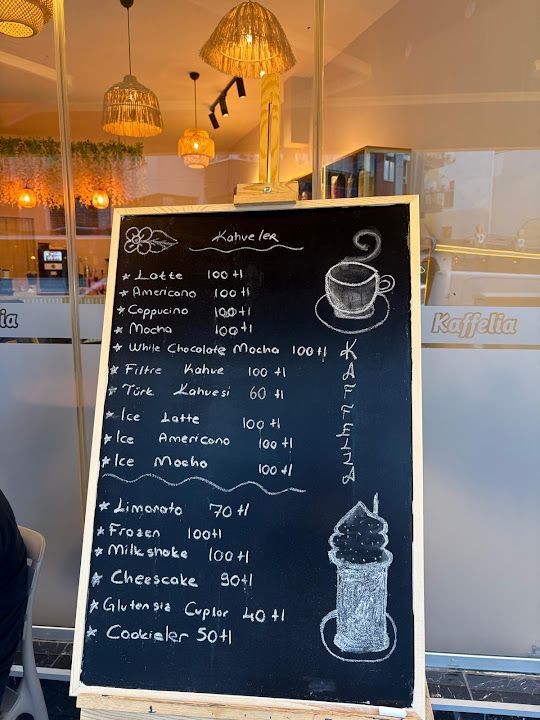 Kahveler
Latte 100 tl
Americano 100 tl
Cappucino 100 tl
Mocha 100 tl
While Chocolate Mocha 100 tl
Filtre Kahve 100 tl
Türk Kahvesi 60 tl
Ice Latte 100 tl
Ice Americano 100 tl
Ice Mocha 100 tl
Limonata 70 tl
Frozen 100 tl
Milkshake 100 tl
Cheescake 90 tl
Glutensiz Cuplar 40 tl
Cookieler 50 tl
KAFFELIA
ia
Kaffelia